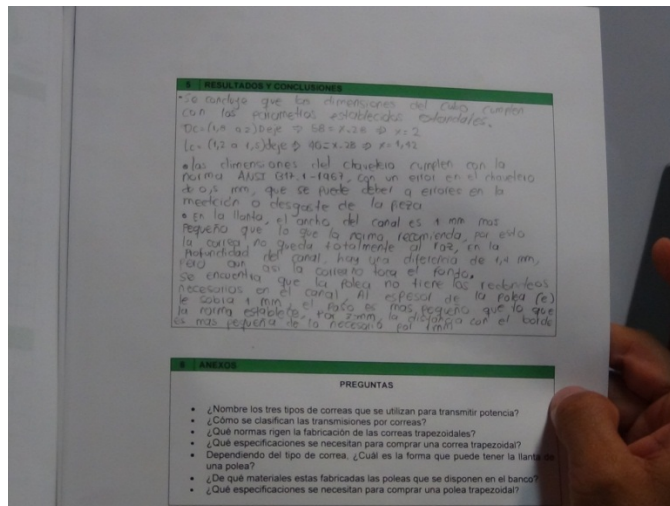 5 RESULTADOS Y CONCLUSIONES
• Se concluye que las dimensiones del cubo cumplen
con los parametros establecidos estandales.
Dc=(1,8 a 2)Deje ⇒ 56=x.28 ⇒ x=2
Lc=(1,2 a 1,5)deje ⇒ 40=x.28 ⇒ x=1,42
• las dimensiones del chavetero cumplen con la
norma ANSI B17.1-1967, con un error en el chavetero
de 0,5 mm, que se puede deber a errores en la
medición o desgaste de la pieza
• En la llanta, el ancho del canal es 1 mm mas
pequeño que lo que la norma recomienda, por esto
la correa no queda totalmente al ras, en la
profundidad del canal, hay una diferencia de 1,4 mm,
pero aun asi la correa no toca el fondo.
se encuentra que la polea no tiene los redondeos
necesarios en el canal, Al espesor de la polea (e)
le sobra 1 mm, el paso es mas pequeño que lo que
la norma establece, por 2mm, la distancia con el borde
es mas pequeña de lo necesario por 1mm
6 ANEXOS
PREGUNTAS
• ¿Nombre los tres tipos de correas que se utilizan para transmitir potencia?
• ¿Cómo se clasifican las transmisiones por correas?
• ¿Qué normas rigen la fabricación de las correas trapezoidales?
• ¿Qué especificaciones se necesitan para comprar una correa trapezoidal?
• Dependiendo del tipo de correa, ¿Cuál es la forma que puede tener la llanta de
una polea?
• ¿De qué materiales estas fabricadas las poleas que se disponen en el banco?
• ¿Qué especificaciones se necesitan para comprar una polea trapezoidal?